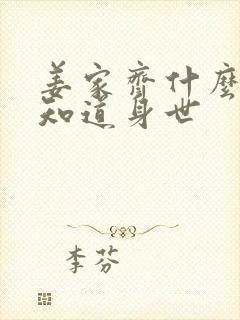 姜家齊什麼
知道身世
李芬